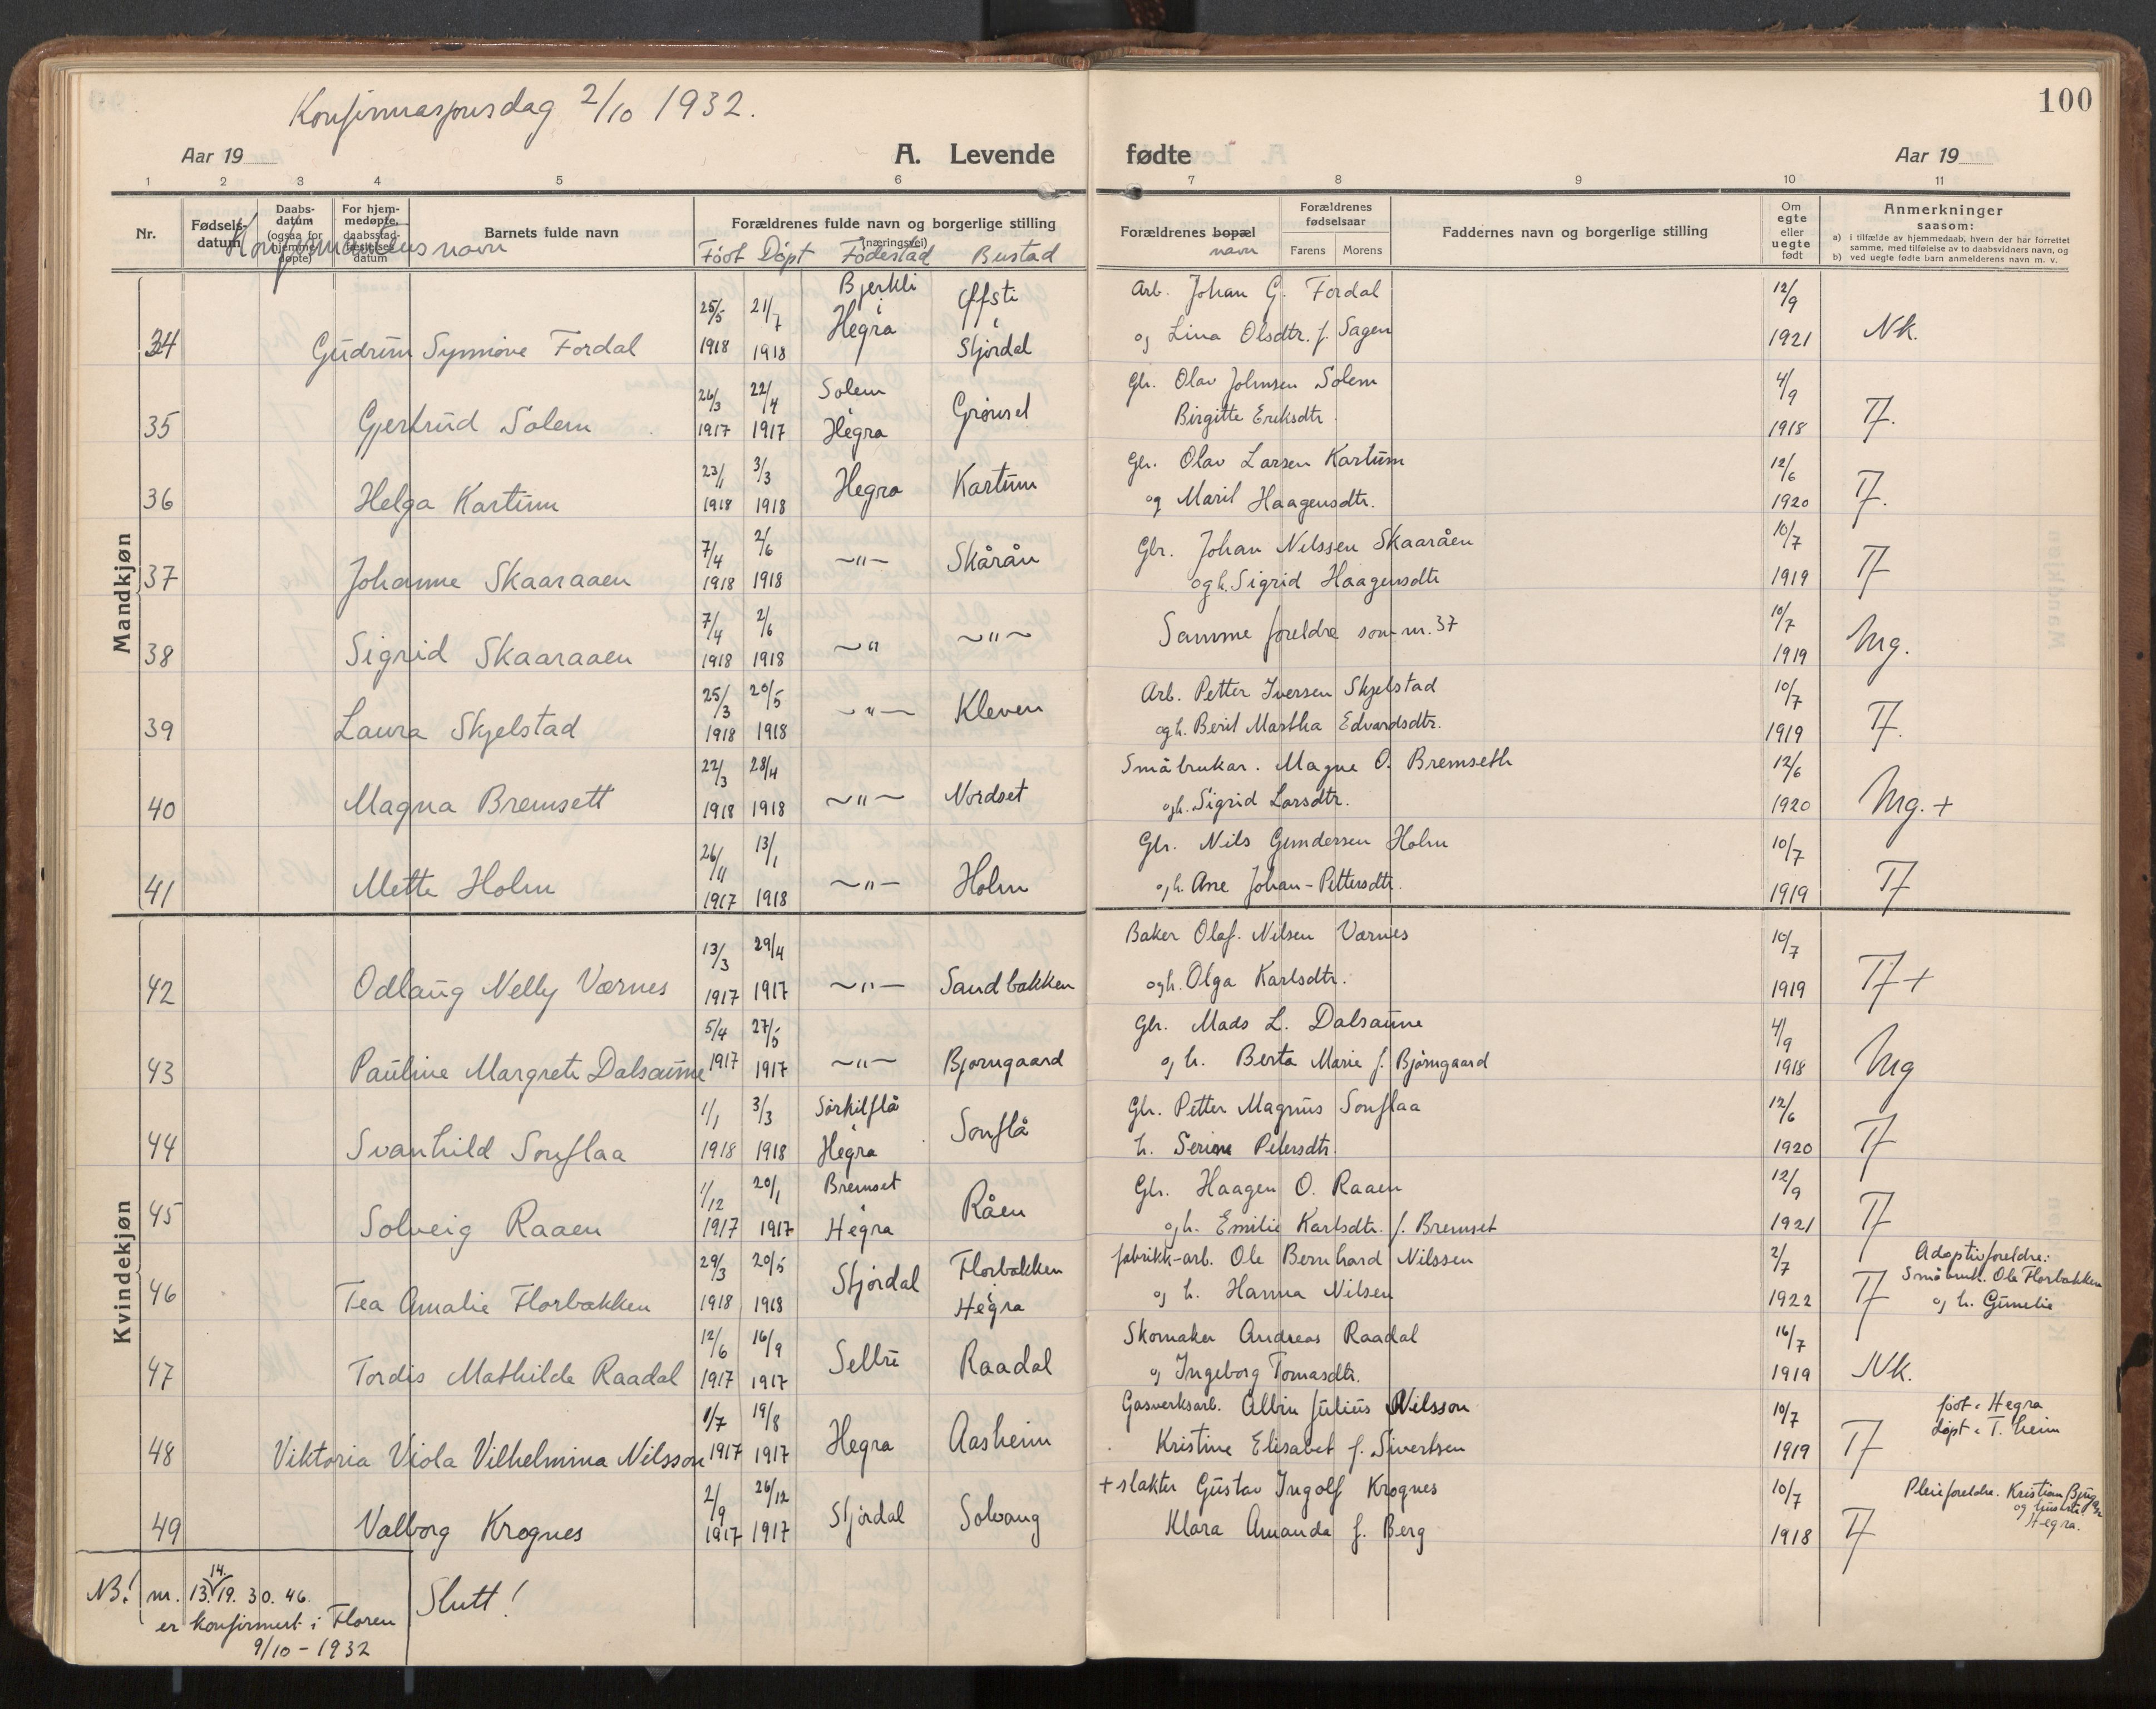 Konfirmasjonsdag 2/10 1932.
100
Aar 19
A. Levende
fødte
Aar 19
1 2 3 4 5 6 7 8 9 10 11
Nr.
Fødsels-datum
Daabs-datum (ogsaa for hjemme-døpte)
For hjem-medøpte, daabsstad-festelses datum
Barnets fulde navn
Forældrenes fulde navn og borgerlige stilling (næringsvei)
Forældrenes bopæl
navn
Forældrenes fødselsaar
Farens Morens
Faddernes navn og borgerlige stilling
Om egte eller uegte født
Anmerkninger saasom:
a) i tilfælde av hjemmedaab, hvem der har forrettet samme, med tilføielse av to daabsvidners navn, og
b) ved uegte fødte barn anmelderens navn m. v.
Konfirmantens navn
Födt Döpt Födestad Bustad
Mandkjøn
34 Gudrun Synnöve Fordal 25/5 1918 21/7 1918 Bjerkli i Hegra Öfsti i Stjördal Arb. Johan G. Fordal
og Lina Olsdtr. f. Sagen 12/9 1921 Nk.
35 Gjertrud Solem 26/3 1917 22/4 1917 Solem i Hegra Grönset Gbr. Olav Johnsen Solem
Birgitte Eriksdtr. 4/9 1918 Tf.
36 Helga Kartum 23/1 1918 3/3 1918 Hegra Kartum Gbr. Olav Larsen Kartum
og Marit Haagensdtr. 12/6 1920 Tf.
37 Johanne Skaaraaen 7/4 1918 2/6 1918 ~"~ Skårån Gbr. Johan Nilssen Skaaråen
og h. Sigrid Haagensdtr 10/7 1919 Tf
38 Sigrid Skaaraaen 7/4 1918 2/6 1918 ~" ~"~ Samme foreldre som nr. 37 10/7 1919 Mg.
39 Laura Skjelstad 25/3 1918 20/5 1918 ~"~ Kleven Arb. Petter Iversen Skjelstad
og h. Berit Martha Edvardsdtr. 10/7 1919 Tf.
40 Magna Bremsett 22/3 1918 28/4 1918 ~"~ Nordset Småbrukar. Magne O. Bremseth
og h. Sigrid Larsdtr. 12/6 1920 Mg. +
41 Mette Holm 26/11 1917 13/1 1918 ~"~ Holm Gbr. Nils Gundersen Holm
og h. Ane Johan-Pettersdtr. 10/7 1919 Tf
Kvindekjøn
42 Odlaug Nelly Værnes 13/3 1917 29/4 1917 ~"~ Sandbakken Baker Olaf. Nilsen Værnes
og h. Olga Karlsdtr. 10/7 1919 Tf +
43 Pauline Margrete Dalsaune 5/4 1917 27/5 1917 ~"~ Bjørngaard Gbr. Mads L. Dalsaune
og h. Berta Marie f. Björngaard 4/9 1918 Mg
44 Svanhild Sonflaa 1/1 1918 3/3 1918 Sörkilflå i Hegra Sonflå Gbr. Petter Magnus Sonflaa
h. Serine Petersdtr. 12/6 1920 Tf
45 Solveig Raaen 1/12 1917 20/1 1917 Bremset i Hegra Råen Gbr. Haagen O. Raaen
og h. Emilie Karlsdtr. f. Bremset 12/9 1921 Tf
46 Tea Amalie Florbakken 29/3 1918 20/5 1918 Stjördal Florbakken i Hegra fabrikk-arb. Ole Bernhard Nilssen
og h. Hanna Nilsen 2/7 1922 Tf Adoptivforeldre:
Småbruk. Ole Florbakken
og h. Gunelie
47 Tordis Mathilde Raadal 12/6 1917 16/9 1917 Selbu Raadal Skomaker Andreas Raadal
og Ingeborg Tomasdtr. 16/7 1919 Nk.
48 Viktoria Viola Vilhelmina Nilsson 1/7 1917 19/8 1917 Hegra Aasheim Gasverksarb. Albin Julius Nilsson
Kristine Elisabet f. Sivertsen 10/7 1919 Tf födt i Hegra
döpt i T. heim
49 Valborg Krognes 2/9 1917 26/12 1917 Stjördal Solvang + slakter Gustav Ingolf Krognes
Klara Amanda f. Berg 10/7 1918 Tf Pleieforeldre. Kristian Berg
og hustru
Hegra.
NB! nr. 13. 14. 19. 30. 46.
er konfirmert i Floren
9/10 - 1932
Slutt!